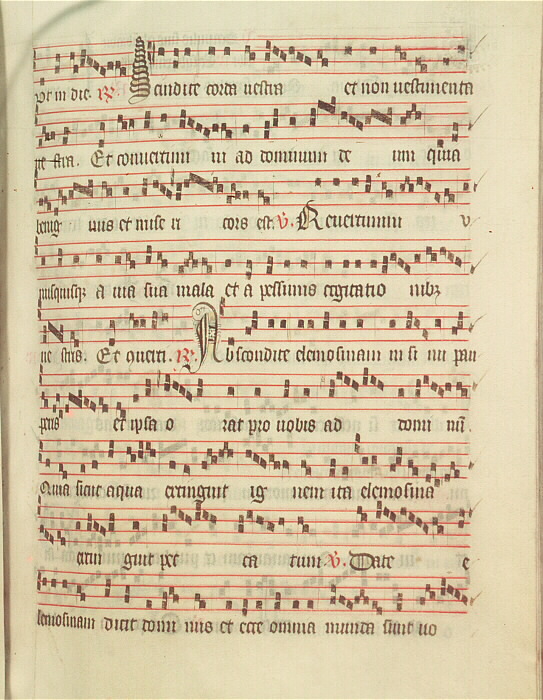 ur in die. R. Scindite corda uestra et non uestimenta
ue stra. Et conuertimi ni ad dominum de um quia
benig nus et mise ri cors est. V. Reuertimini v
nusquisq; a uia sua mala et a pessimis cogitatio nib;
ue stris. Et queri. R. Abscondite elemosinam in si nu pau
peris et ipsa o rat pro uobis ad domi nū.
Quia sicut aqua extinguit ig nem ita elemosina
extin guit pec ca tum. V. Date e
lemosinam dicit domi nus et ecce omnia munda sunt uo